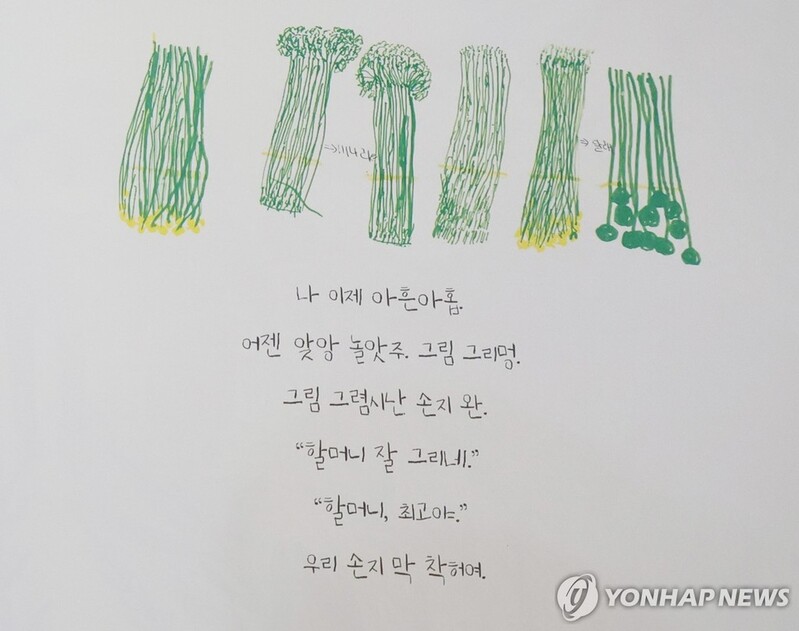 나 이제 아흔아홉.
어젠 앚앙 놀앗주. 그림 그리멍.
그림 그렴시난 손지 완.
“할머니 잘 그리네.”
“할머니, 최고야.”
우리 손지 막 착허여.
YONHAP NEWS